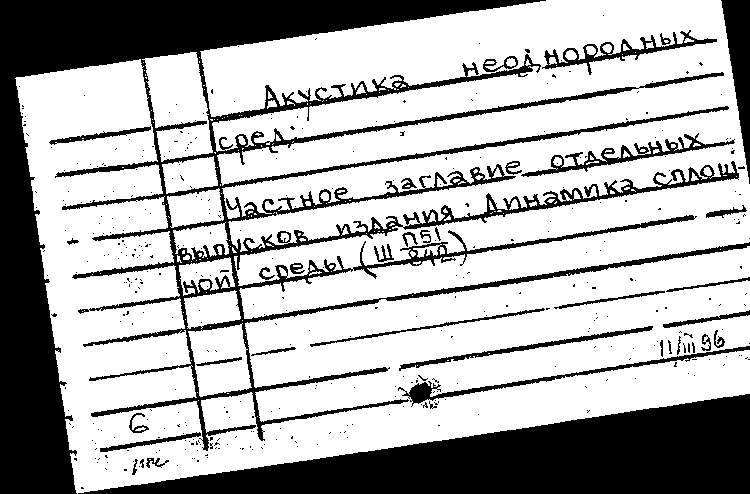 Акустика неоднородных
сред.
Частное заглавие отдельных
выпусков издания: Динамика сплош-
ной среды (Ш П51/842)
11/III 96
6